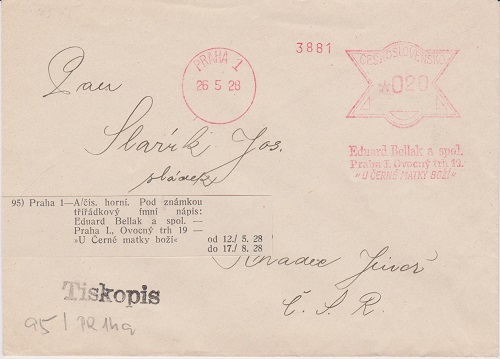 3881
PRAHA 1
26 5 28
ČESKOSLOVENSKO
*020
Eduard Bellak a spol.
Praha I. Ovocný trh 19.
»U ČERNÉ MATKY BOŽÍ«
Pan
Slařík Jos.
sládek
95) Praha 1—A/čís. horní. Pod známkou
třířádkový fmní nápis:
Eduard Bellak a spol. —
Praha I., Ovocný trh 19 —
»U Černé matky boží« od 12./5. 28
do 17./8. 28
Hradec Jindř.
Č. S. R.
Tiskopis
95/PR1hg